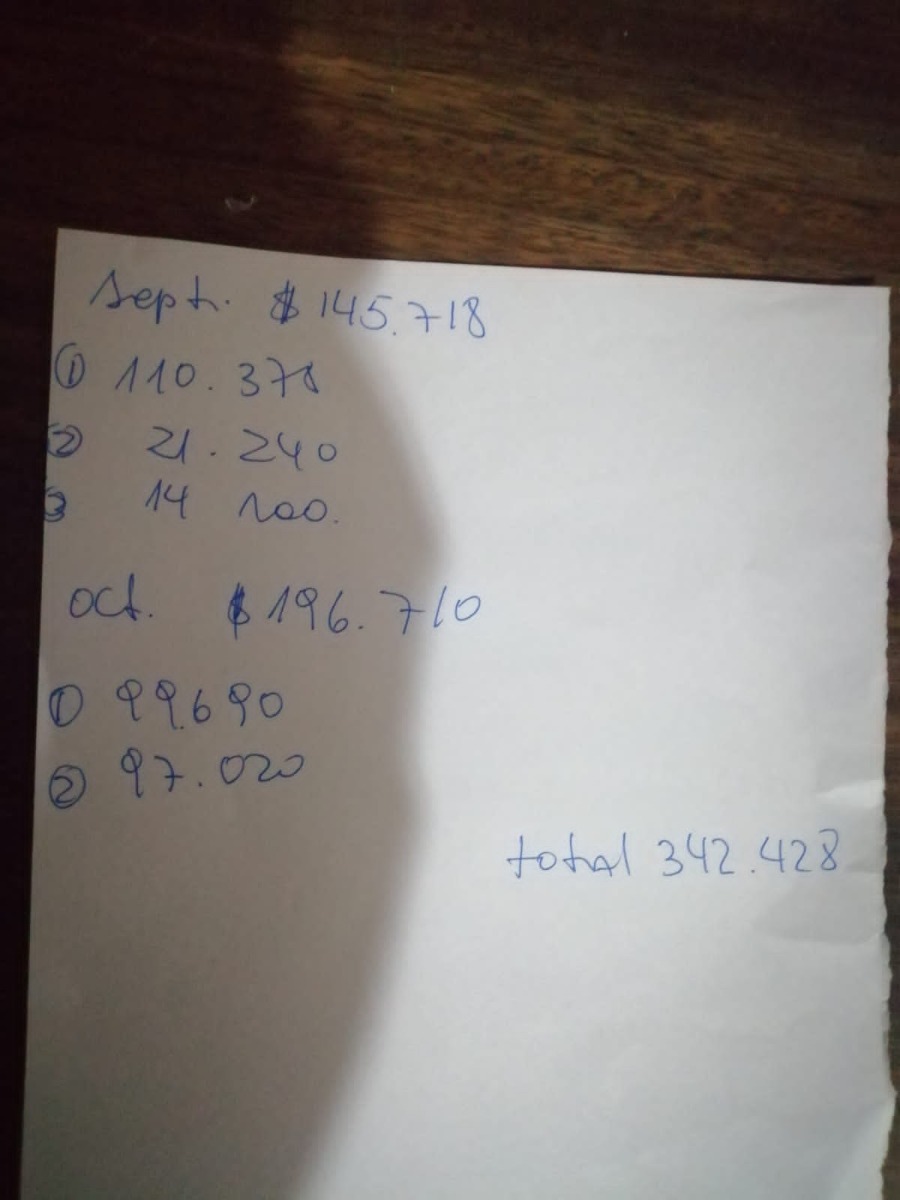 Sept. $ 145.718
① 110.378
② 21.240
③ 14 100.
oct. $ 196.710
① 99.690
② 97.020
total 342.428